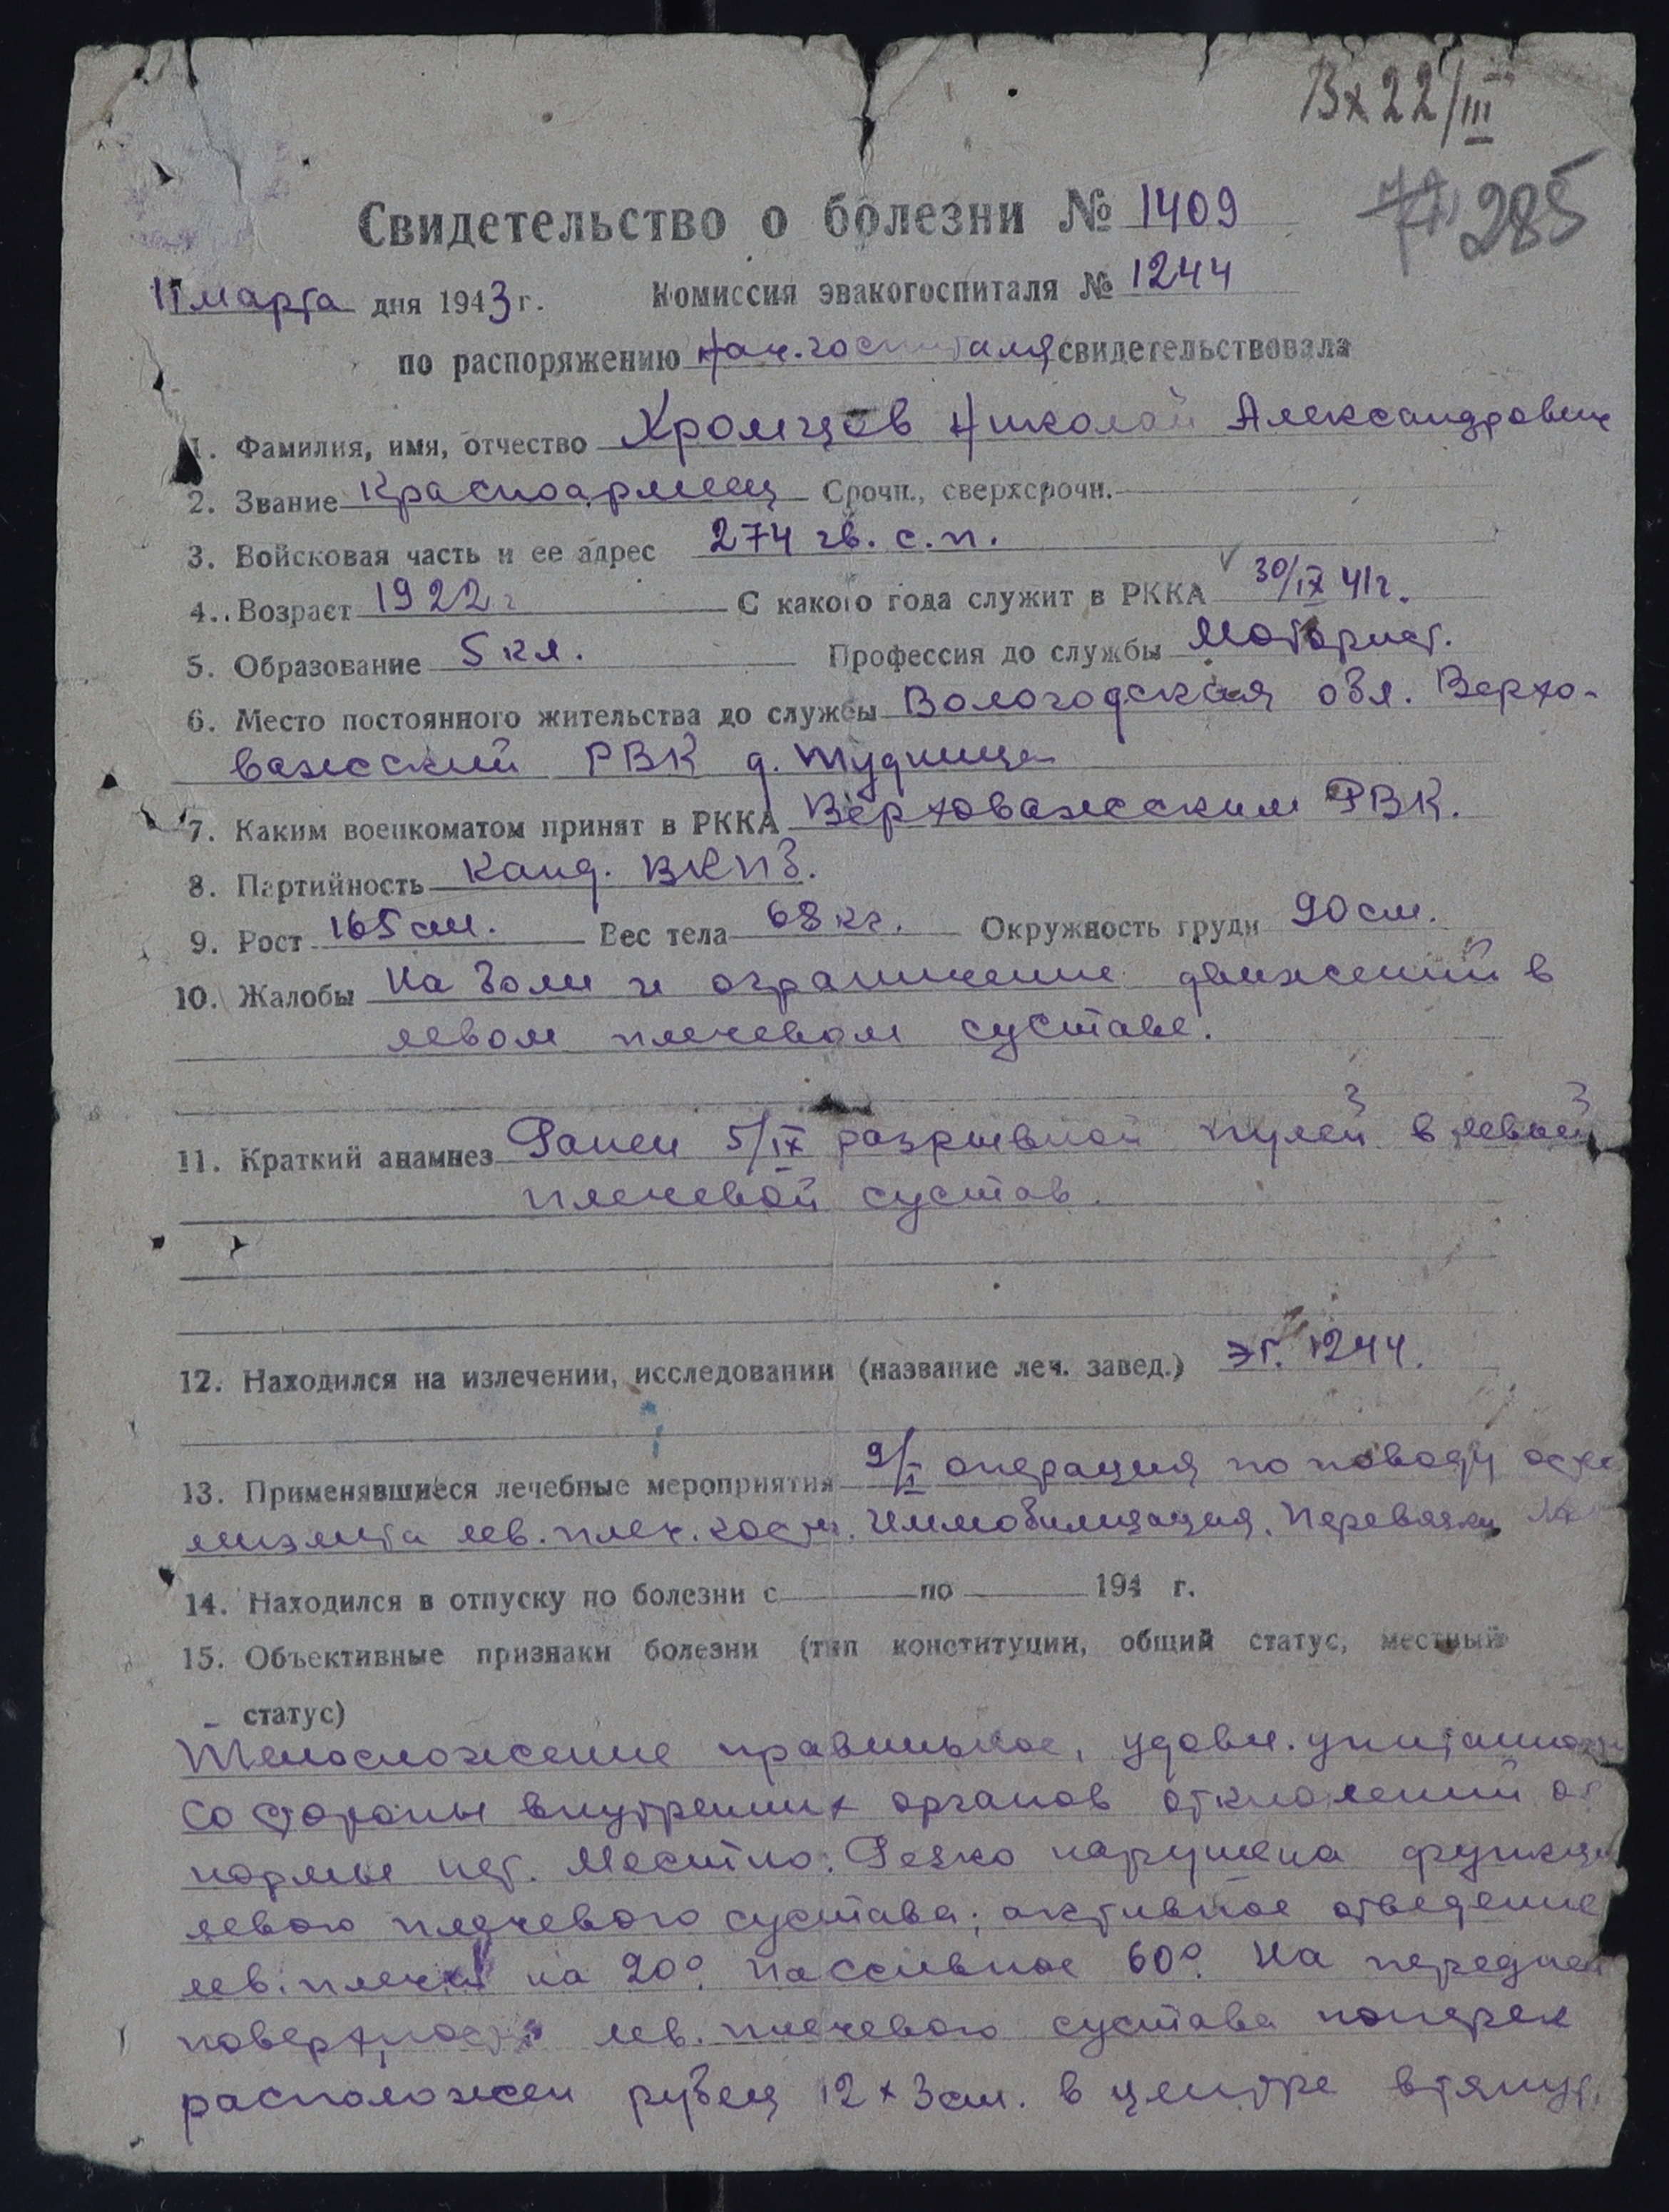 Вх 22/III
285
Свидетельство о болезни № 1409
11 марта дня 1943 г. Комиссия эвакогоспиталя № 1244
по распоряжению нач. госпиталя свидетельствовала
1. Фамилия, имя, отчество Хромцов Николай Александрович
2. Звание Красноармеец Срочн., сверхсрочн.
3. Войсковая часть и ее адрес 274 гв. с.п.
4. Возраст 1922 г С какого года служит в РККА 30/IX 41г.
5. Образование 5 кл. Профессия до службы Моторист.
6. Место постоянного жительства до службы Вологодская обл. Верхо-
важский РВК д.
7. Каким военкоматом принят в РККА Верховажским РВК.
8. Партийность Канд. ВКПб.
9. Рост 165 см. Вес тела 68 кг. Окружность груди 90 см.
10. Жалобы На боли и ограничение движений в
левом плечевом суставе.
11. Краткий анамнез Ранен 5/IX разрывной пулей в левый
плечевой сустав.
12. Находился на излечении, исследовании (название леч. завед.) эг. 1244.
13. Применявшиеся лечебные мероприятия 9/I операция по поводу
лев. плеч. кости. Иммобилизация. Перевязки
14. Находился в отпуску по болезни с по 194 г.
15. Объективные признаки болезни (тип конституции, общий статус, местный
статус)
Телосложение правильное, удовл.
Со стороны внутренних органов отклонений от
нормы нет. Местно: Резко нарушена
левого плечевого сустава; активное отведение
лев. плеча на 20°. Пассивное 60°. На передней
поверхности лев. плечевого сустава поперек
расположен рубец 12 х 3 см. в центре втянут.